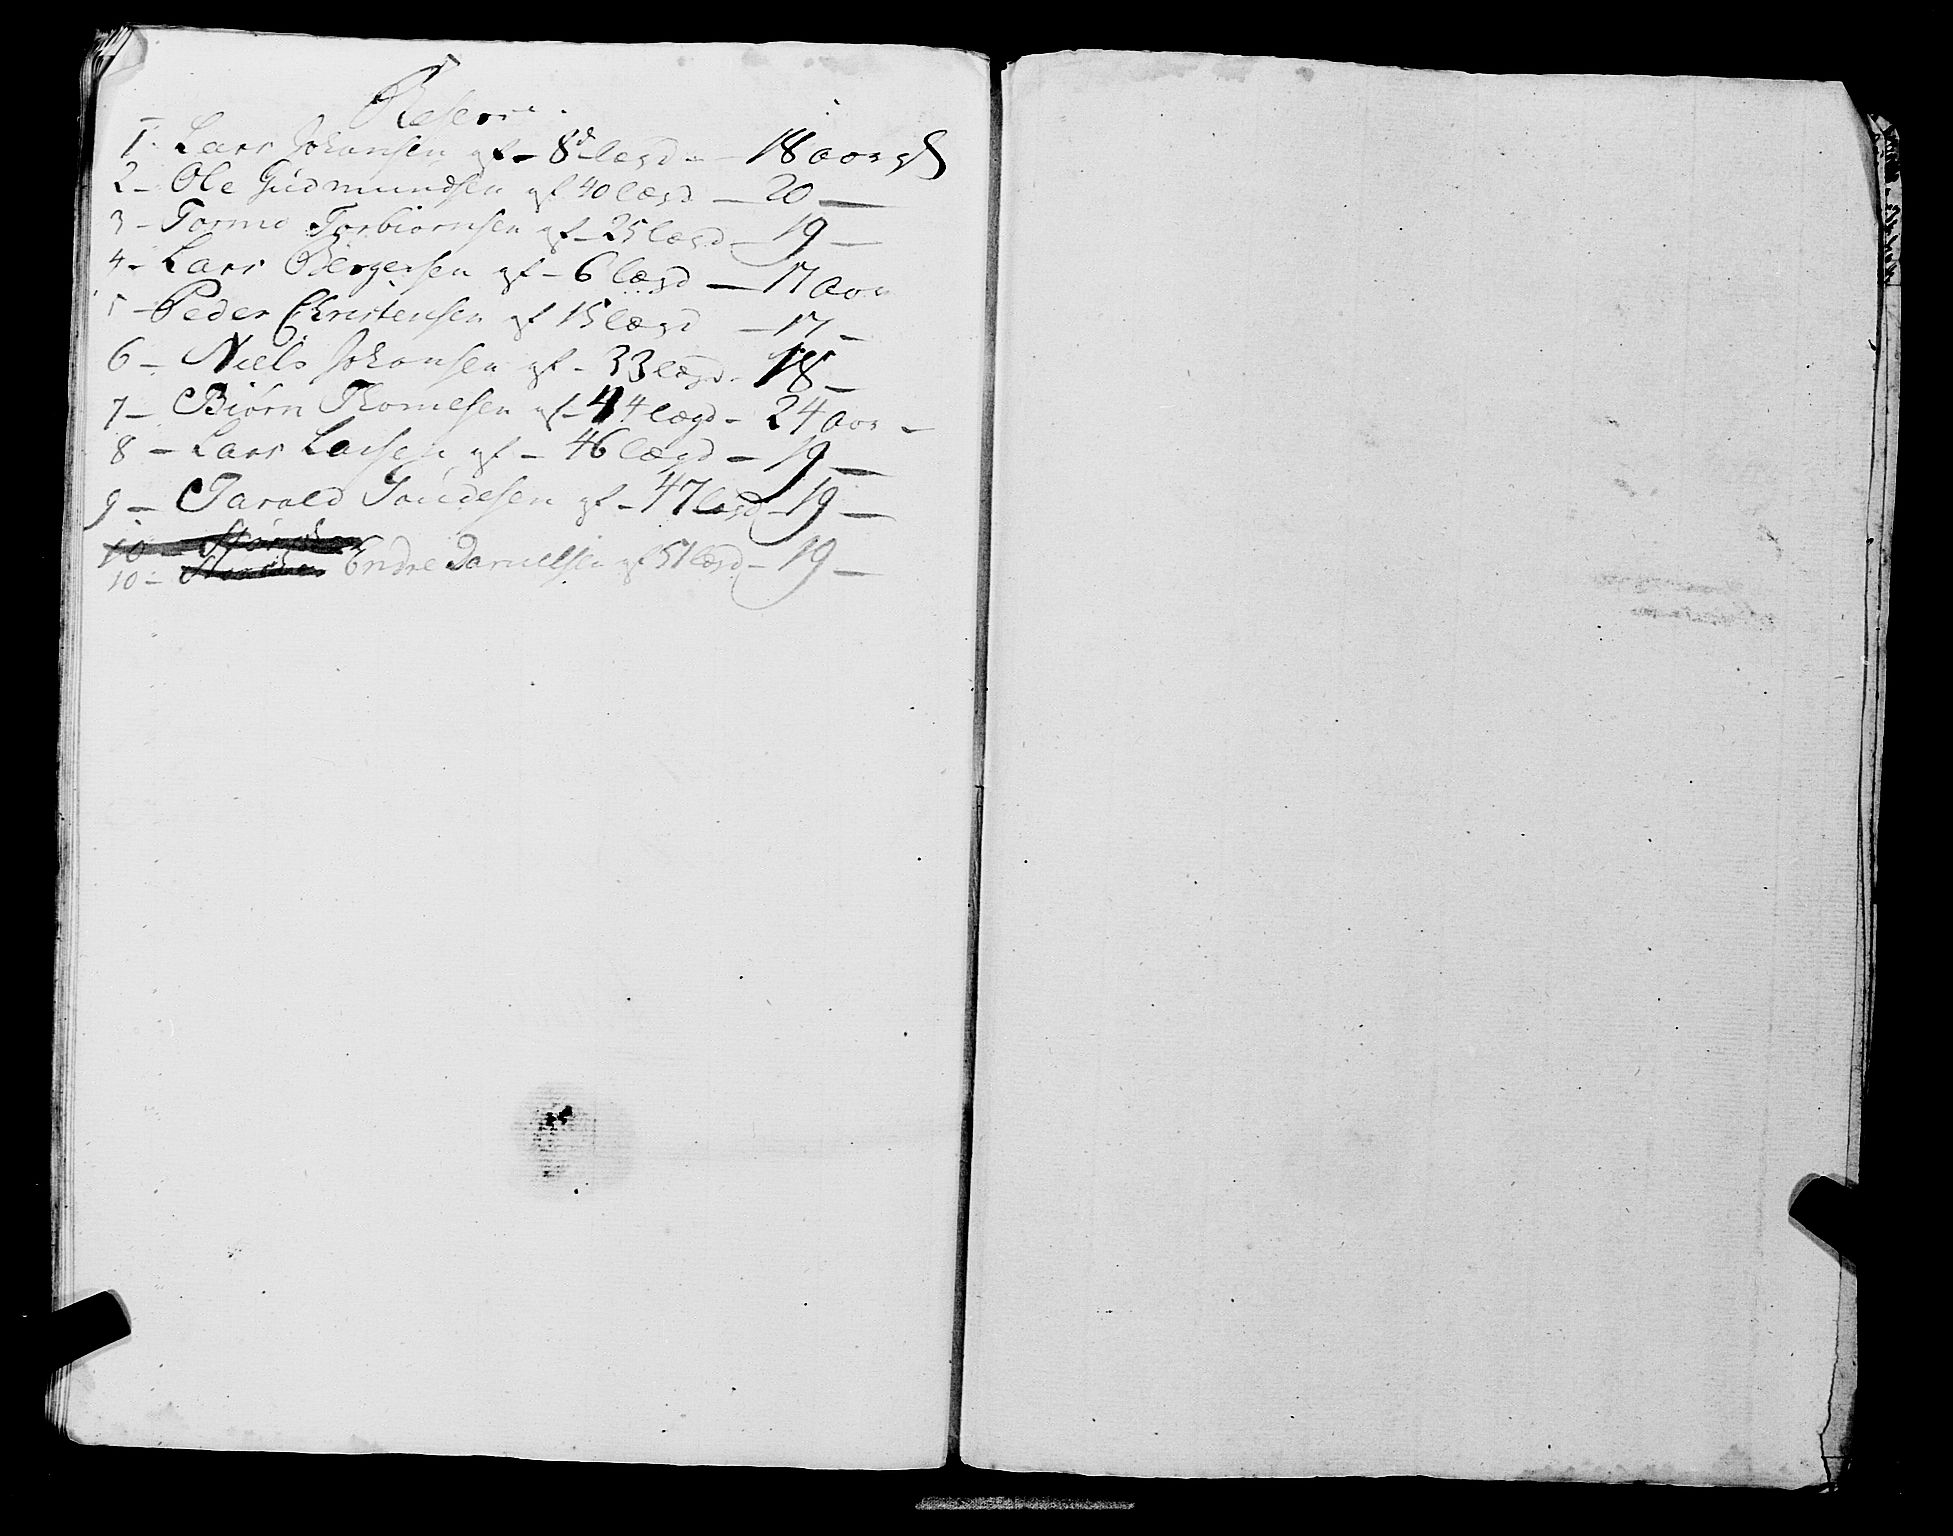 Reserve
1 - Lars Johansen af - 8de lægd - 18 aar gl
2 - Ole Gudmundsen af 40 lægd - 20 -
3 - Tormo Torbiørnsen af - 25 lægd - 19 -
4 - Lars Bergersen af - 6 lægd - 17 aar
5 - Peder Christensen af 15 lægd - 17 -
6 - Niels Johansen af - 33 lægd - 18 -
7 - Biørn Thomesen af - 44 lægd - 24 aar -
8 - Lars Larsen af - 46 lægd - 19 -
9 - Tarald af - 47 lægd - 19 -
10 -
10 - Endre Danielsen af 51 lægd - 19 -